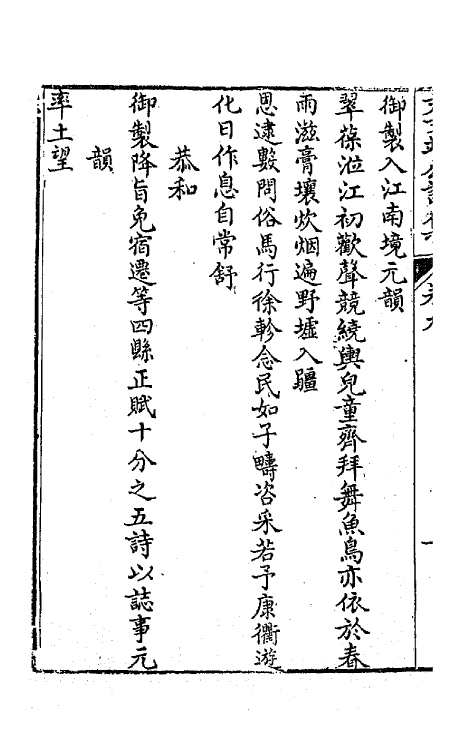 御製入江南境元韻
翠葆涖江初歡聲競繞輿兒童齊拜舞魚鳥亦依於春
雨滋膏壤炊烟遍野墟入疆
恩逮數問俗馬行徐軫念民如子疇咨采若予康衢遊
化日作息自常舒
恭和
御製降旨免宿遷等四縣正賦十分之五詩以誌事元
韻
率土望
卷九
一